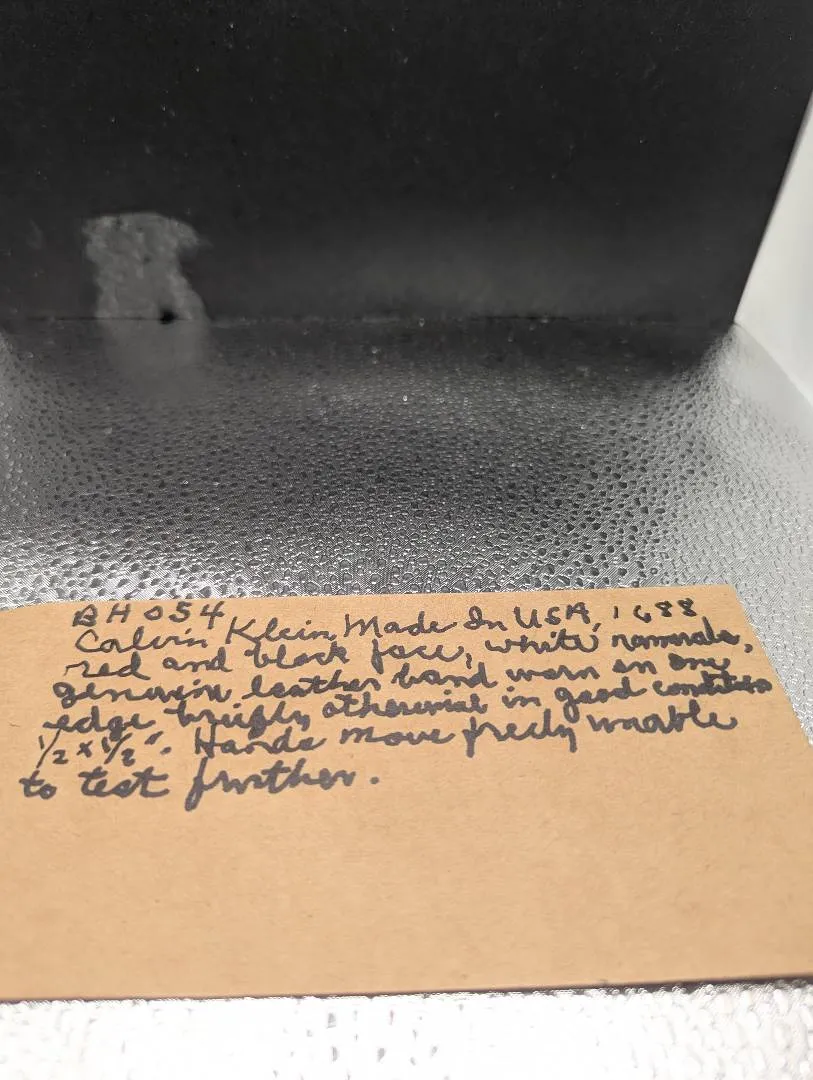 BH 054
Calvin Klein, Made In USA, 1688
red and black face, white numerals,
genuin leather band worn on one
edge briefly otherwise in good condition
1/2 x 1/2". Hands move freely unable
to test further.